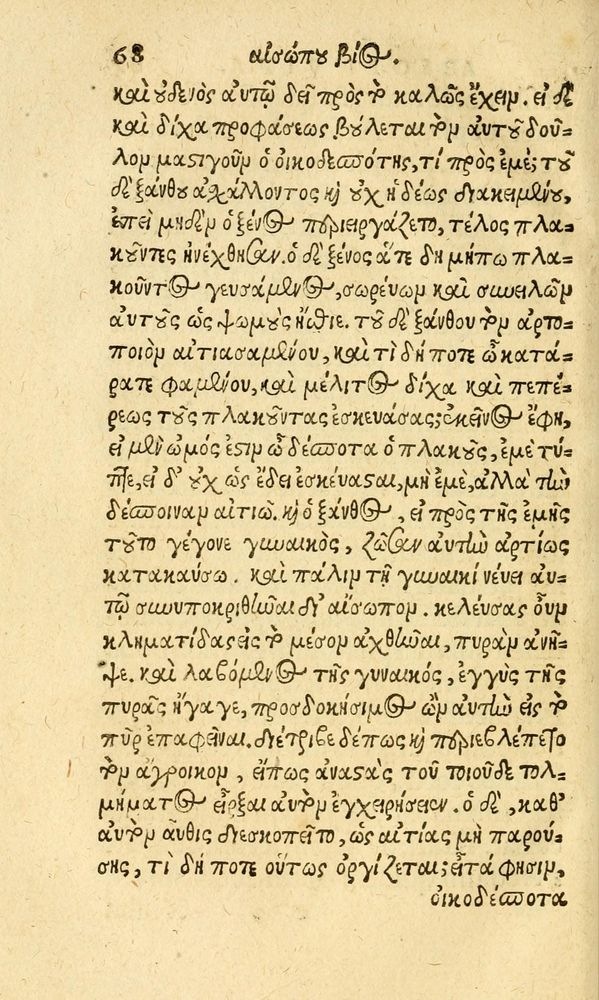 68 αἰσώπου βίος.
καὶ οὐδενὸς αὐτῷ δεῖ πρὸς τὸ καλῶς ἔχειν. εἰ δὲ
καὶ δίχα προφάσεως βούλεται τὸν αὑτοῦ δοῦ-
λον μαστιγοῦν ὁ οἰκοδεσπότης, τί πρὸς ἐμέ; τοῦ
δὲ ξάνθου ἀσχάλλοντος κỳ οὐχ ἡδέως διακειμένου,
ἐπεὶ μηδὲν ὁ ξένος περιειργάζετο, τέλος πλα-
κοῦντες ἠνέχθησαν. ὁ δὲ ξένος ἅτε δὴ μήπω πλα-
κοῦντος γευσάμενος, σωρεύων καὶ συνειλῶν
αὐτοὺς ὡς ψωμοὺς ἤσθιε. τοῦ δὲ ξάνθου τὸν ἀρτο-
ποιὸν αἰτιασαμένου, καὶ τὶ δήποτε ὦ κατά-
ρατε φαμένου, καὶ μέλιτος δίχα καὶ πεπέ-
ρεως τοὺς πλακοῦντας ἐσκευάσας; ἐκεῖνος ἔφη,
εἰ μὲν ὠμός ἐστιν ὦ δέσποτα ὁ πλακοῦς, ἐμὲ τύ-
πτε, εἰ δ' οὐχ ὡς ἔδει ἐσκεύασται, μὴ ἐμὲ, ἀλλὰ τὴν
δέσποιναν αἰτιῶ. κỳ ὁ ξάνθος, εἰ πρὸς τῆς ἐμῆς
τοῦτο γέγονε γυναικὸς, ζῶσαν αὐτὴν ἀρτίως
κατακαύσω. καὶ πάλιν τῇ γυναικὶ νεύει αὐ-
τῷ συνυποκριθῆναι δι' αἴσωπον. κελεύσας οὖν
κληματίδας εἰς τὸ μέσον ἀχθῆναι, πυρὰν ἀνῆ-
ψε. καὶ λαβόμενος τῆς γυναικός, ἐγγὺς τῆς
πυρᾶς ἤγαγε, προσδοκήσιμος ὢν αὐτὴν εἰς τὸ
πῦρ ἐπαφεῖναι. διέτριβε δέ πως κỳ περιεβλέπετο
τὸν ἄγροικον, εἴπως ἀναστὰς τοῦ τοιοῦδε τολ-
μήματος εἶρξαι αὐτὸν ἐγχειρήσειεν. ὁ δὲ, καθ'
αὑτὸν αὖθις διεσκοπεῖτο, ὡς αἰτίας μὴ παρού-
σης, τί δήποτε οὕτως ὀργίζεται; εἶτά φησιν,
οἰκοδέσποτα